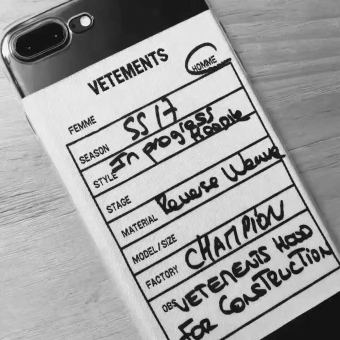 VETEMENTS
FEMME HOMME
SEASON SS17
STYLE In progress Hoodie
STAGE
MATERIAL Reverse Weave
MODEL/SIZE
FACTORY CHAMPION
OBS VETEMENTS HOOD
FOR CONSTRUCTION